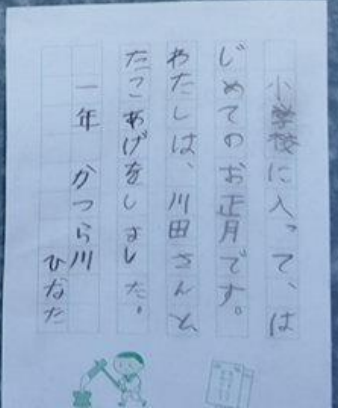 小学校に入って、は
じめてのお正月です。
わたしは、川田さんと、
たこあげをしました。
一年 かつら川
ひなた